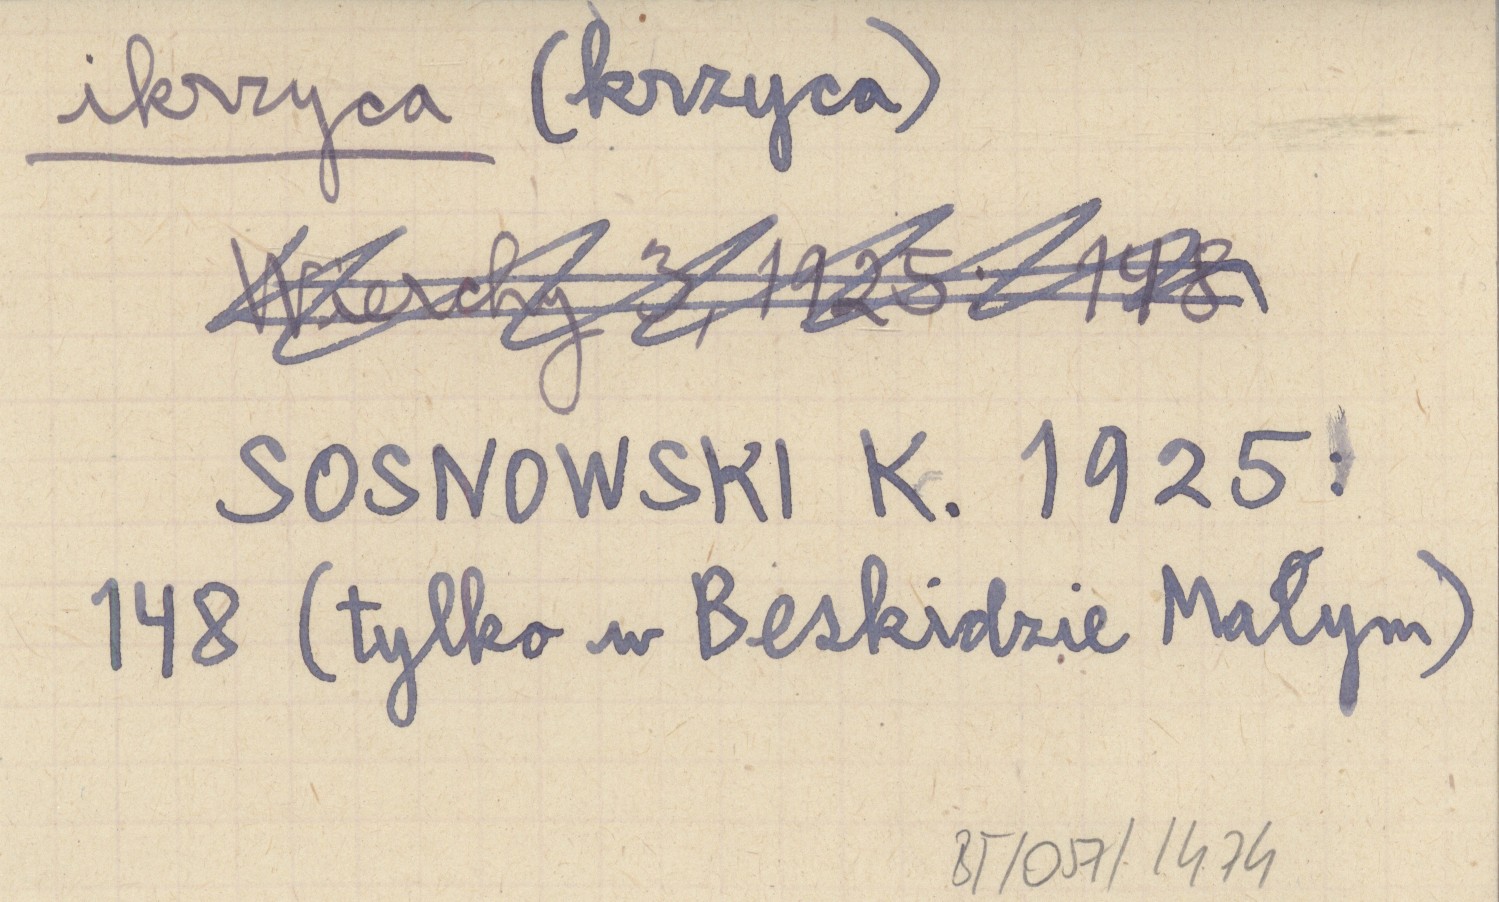 ikrzyca (krzyca)
Wierchy 3, 1925: 148
SOSNOWSKI K. 1925:
148 (tylko w Beskidzie Małym)
BT/057/1474